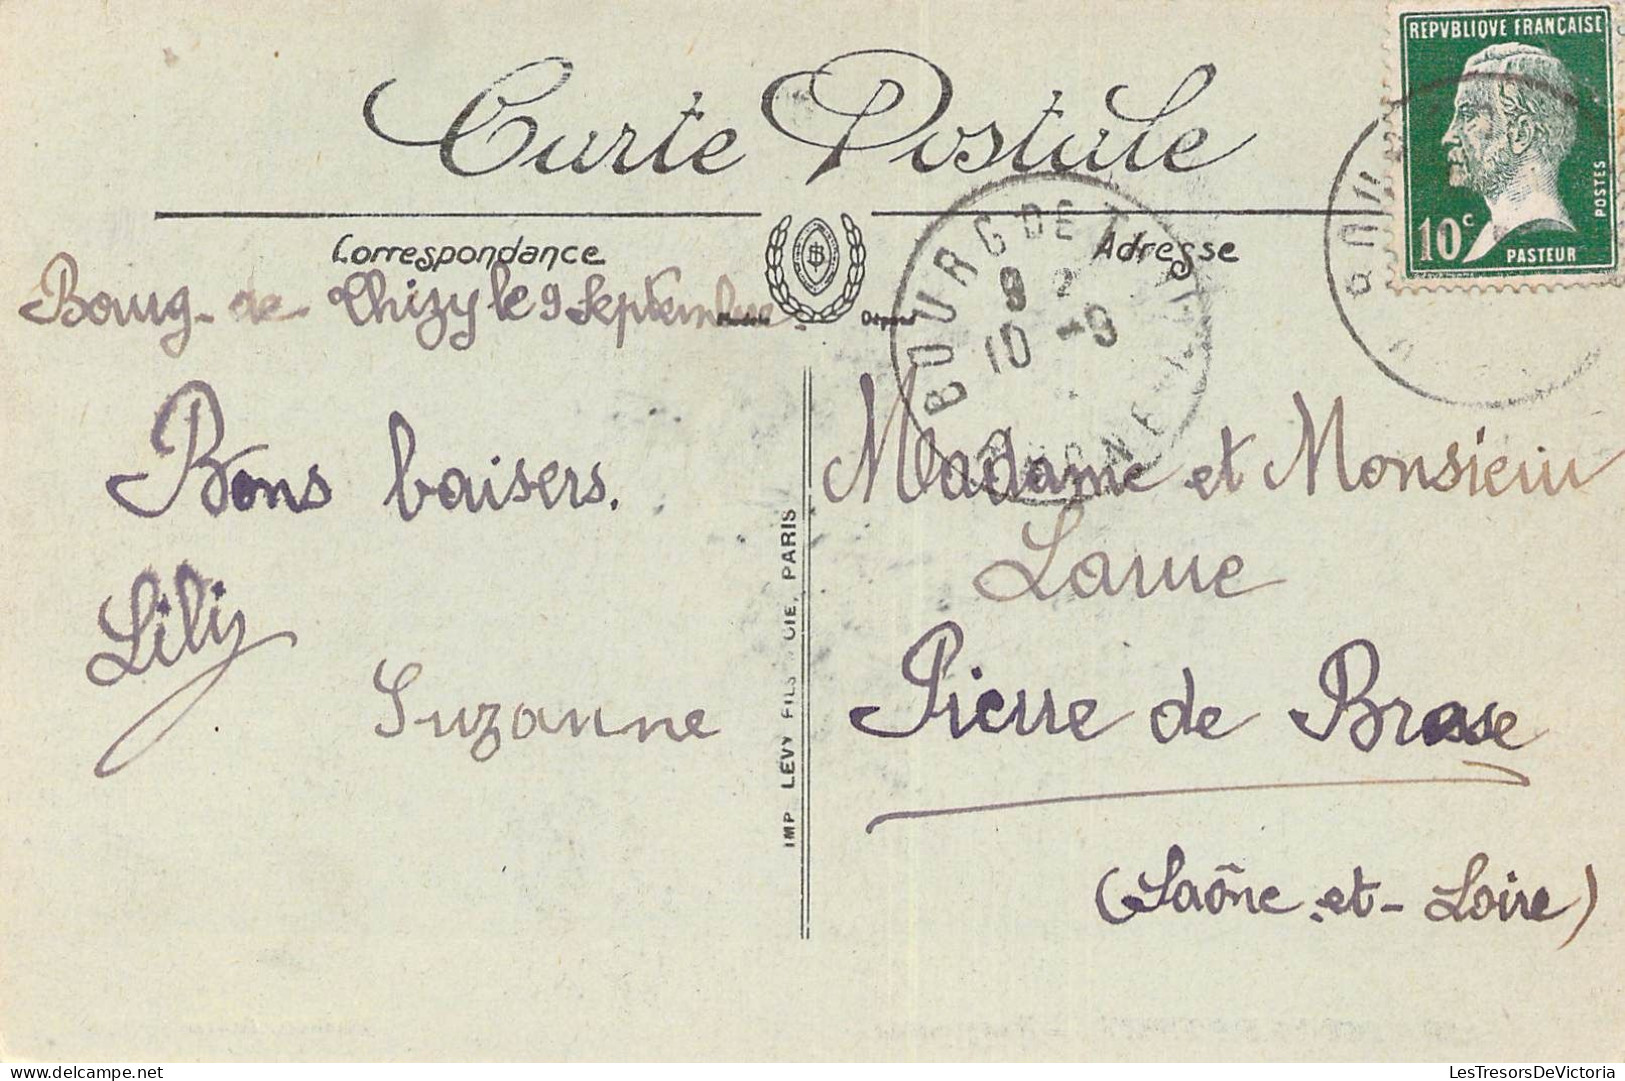 Carte Postale
REPVBLIQVE FRANÇAISE
POSTES
10c
PASTEUR
Correspondance
Adresse
BOURG DE
10 -9
Boug-de-Thizy le 9 Septembre
Bons baisers.
Lily
Suzanne
IMP. LEVY FILS CIE, PARIS
Madame et Monsieur
Larue
Pierre de Bresse
(Saône-et-Loire)
LesTresorsDeVictoria